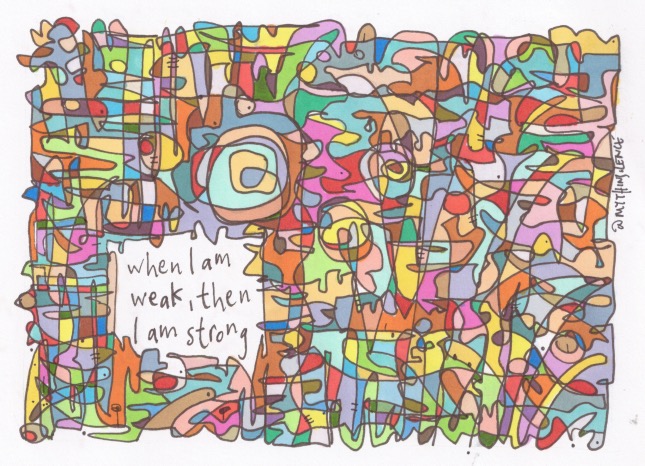 when I am
weak, then
I am strong